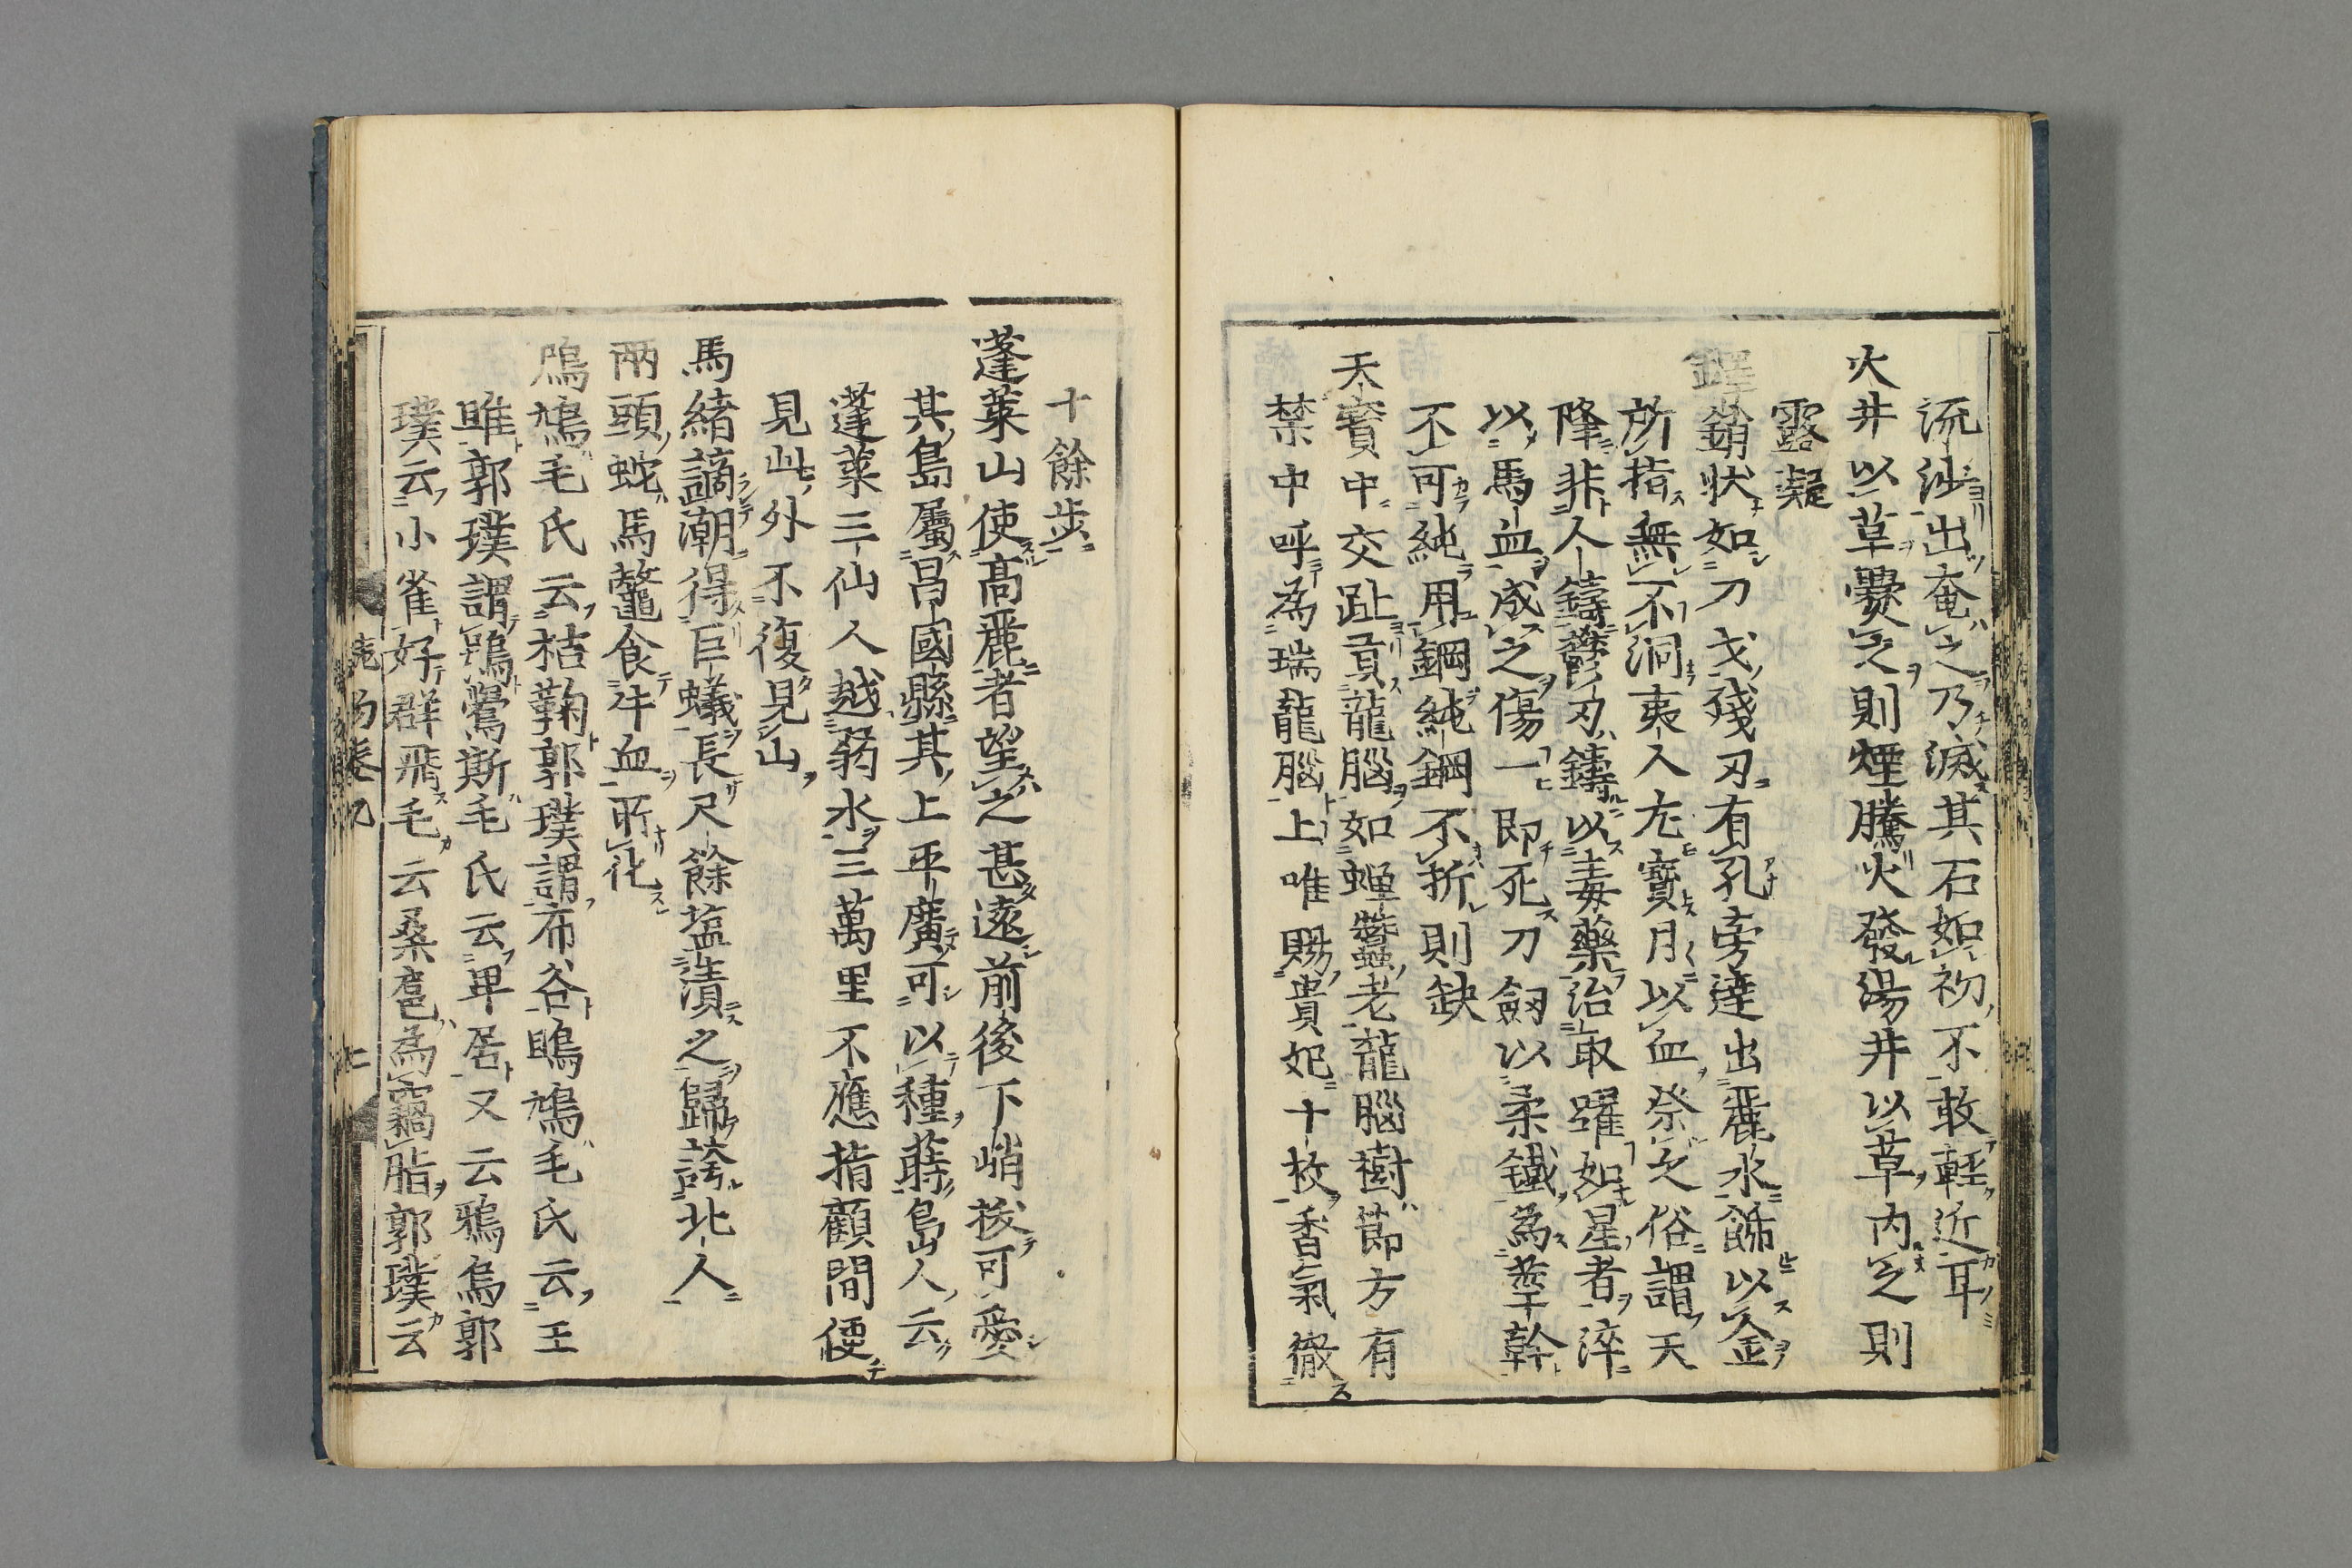 流沙出奄之乃滅其石如初不敢輕近耳
火井以草㸑之則煙騰火發湯井以草内之則
露凝
鐸鞘狀如刀戈殘刃有孔旁達出麗水餙以金
所指無不洞夷人尤寶月以血祭之俗謂天
降非人鑄欝刃鑄以毒藥治取躍如星者淬
以馬血成之傷一即死刀劔以柔鐵為莖幹
不可純用鋼純鋼不折則缺
天寳中交趾貢龍腦如蟬蠶老龍腦樹節方有
禁中呼為瑞龍腦上唯賜貴妃十枚香氣徹
十餘歩
蓬萊山使髙麗者望之甚遠前後下峭拔可愛
其島屬昌國縣其上平廣可以種蒔島人云
蓬萊三仙人越弱水三萬里不應指顧間便
見此外不復見山
馬緒謫潮得巨蟻長尺餘塩漬之歸誇北人
兩頭蛇馬鼈食牛血所化
鳲鳩毛氏云秸鞠郭璞謂布谷鵙鳩毛氏云王
雎郭璞謂鶚鸒斯毛氏云卑居又云鴉烏郭
璞云小雀好群飛毛云桑扈為竊脂郭璞云